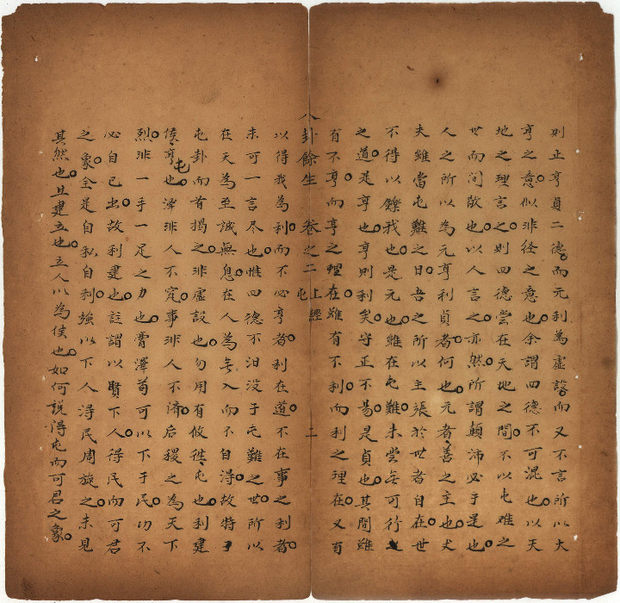 則止亨貞二德而元利為虛設而又不言所以大
亨之意似非經之意也余謂四德不可混也以天
地之理言之則四德嘗在天地之間不以屯难之
世而间歇也以人言之亦然所謂顛沛必于是也
人之所以為元亨利貞者何也元者善之主也丈
夫雖當屯難之日吾之所以主張於世者自在世
不得以鑠我也是元也雖在屯難未嘗無可行
之道是亨也亨則利矣守正不易是貞也其間雖
有不亨而亨之理在雖有不利而利之理在又有
八卦餘生 卷之二 上經 屯 二
以得我為利而不必亨者利在道不在事之利者
未可一言尽也惟四德不汨没于屯難之世所以
在天為至誠無息在人為無入而不自得故特于
屯卦而首揭之非虛設也勿用有攸徃屯也利建
侯亨屯也非人不定事非人不濟后稷之為天下
烈非一手一足之力也膏澤苟可以下于民功不
必自己出故利建也註謂以賢下人得民而可君
之象全是自私自利強以下人得民周旋之未見
其然也且建立也立人以為侯也如何說得屯而可君之象